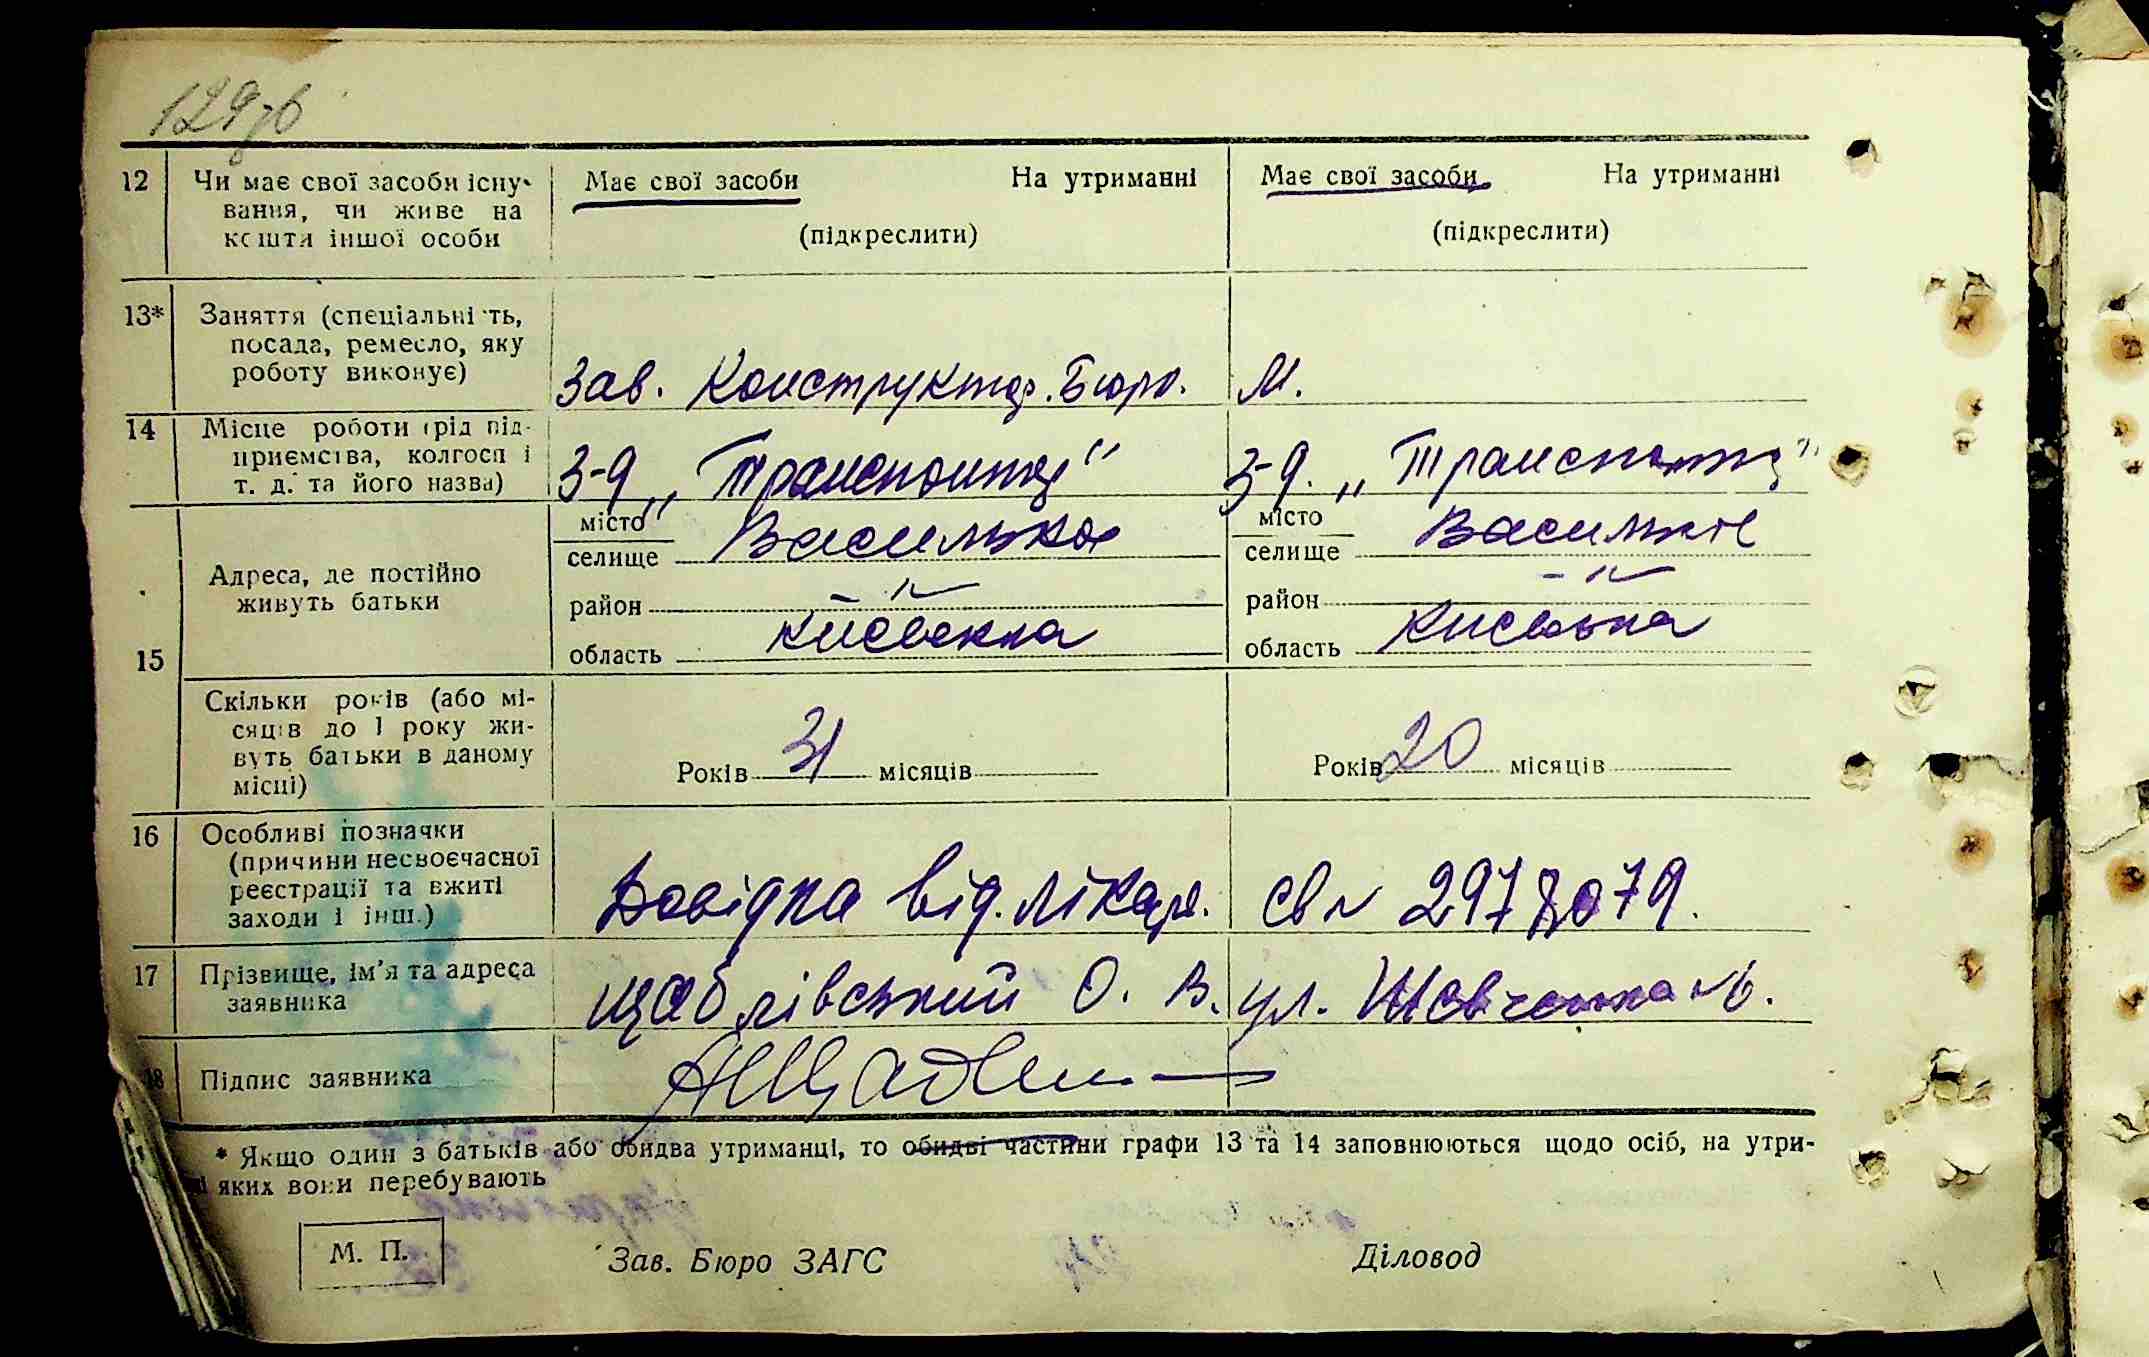 129зв
12 Чи має свої засоби існу- Має свої засоби На утриманні Має свої засоби На утриманні
вання, чи живе на
кошти іншої особи (підкреслити) (підкреслити)
13* Заняття (спеціальність,
посада, ремесло, яку
роботу виконує) Зав. Конструктор. Бюро. М.
14 Місце роботи (рід під-
приємства, колгосп і З-д „Транспонтер" З-д. „Транспонтер"
т. д. та його назва)
місто Васильков місто Васильків
селище селище
15 Адреса, де постійно
живуть батьки район -"- район -"-
область Київська область Київська
Скільки років (або мі-
сяців до 1 року жи-
вуть батьки в даному Років 31 місяців Років 20 місяців
місці)
16 Особливі позначки
(причини несвоєчасної
реєстрації та вжиті Довідка від. лікар. св № 2978079.
заходи і інш.)
17 Прізвище, ім'я та адреса
заявника Щаблівський О. В. ул. Шевченка №6.
18 Підпис заявника
* Якщо один з батьків або обидва утриманці, то обидві частини графи 13 та 14 заповнюються щодо осіб, на утри-
яких вони перебувають
М. П. Зав. Бюро ЗАГС Діловод